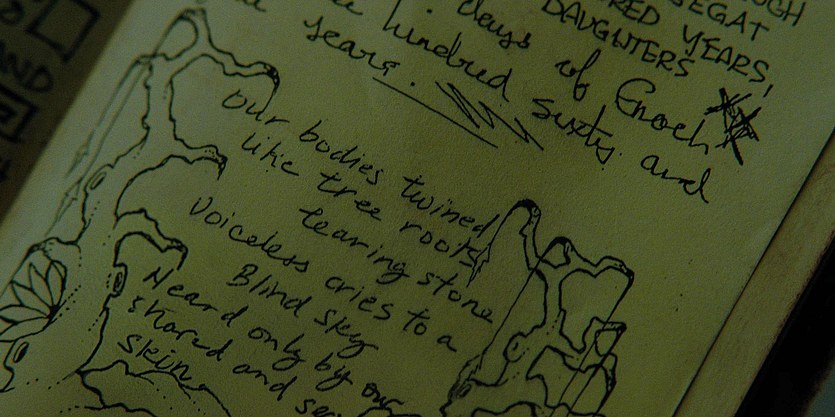 OUGH
SEGAT
RED YEARS,
DAUGHTERS
days of Enoch
hundred sixty and
years.
AND
Our bodies twined
like tree roots
tearing stone
Voiceless cries to a
Blind sky
Heard only by our
shared and
skin